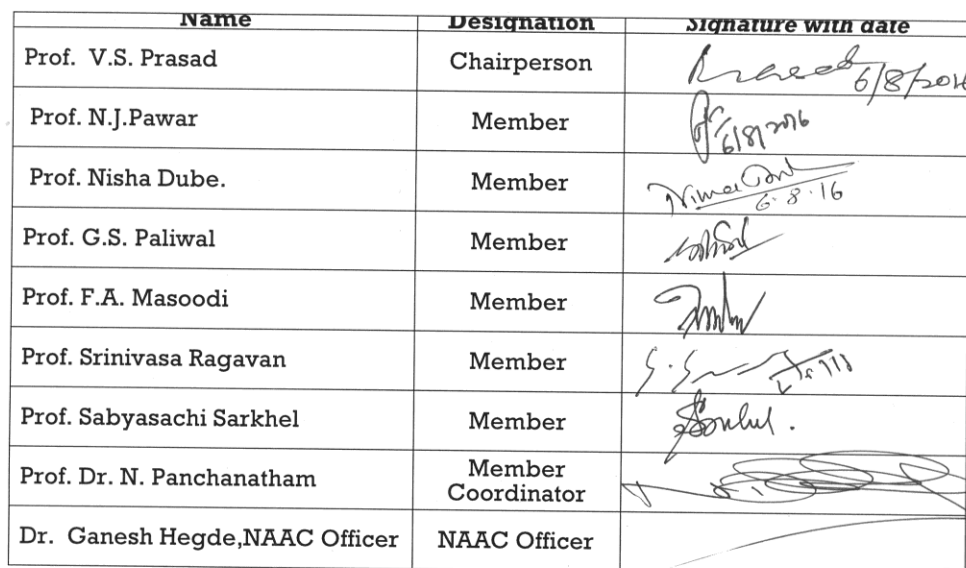 Name Designation Signature with date
Prof. V.S. Prasad Chairperson Prasad 6/8/2016
Prof. N.J.Pawar Member 6/8/2016
Prof. Nisha Dube. Member 6.8.16
Prof. G.S. Paliwal Member
Prof. F.A. Masoodi Member
Prof. Srinivasa Ragavan Member
Prof. Sabyasachi Sarkhel Member
Prof. Dr. N. Panchanatham Member
Coordinator
Dr. Ganesh Hegde,NAAC Officer NAAC Officer